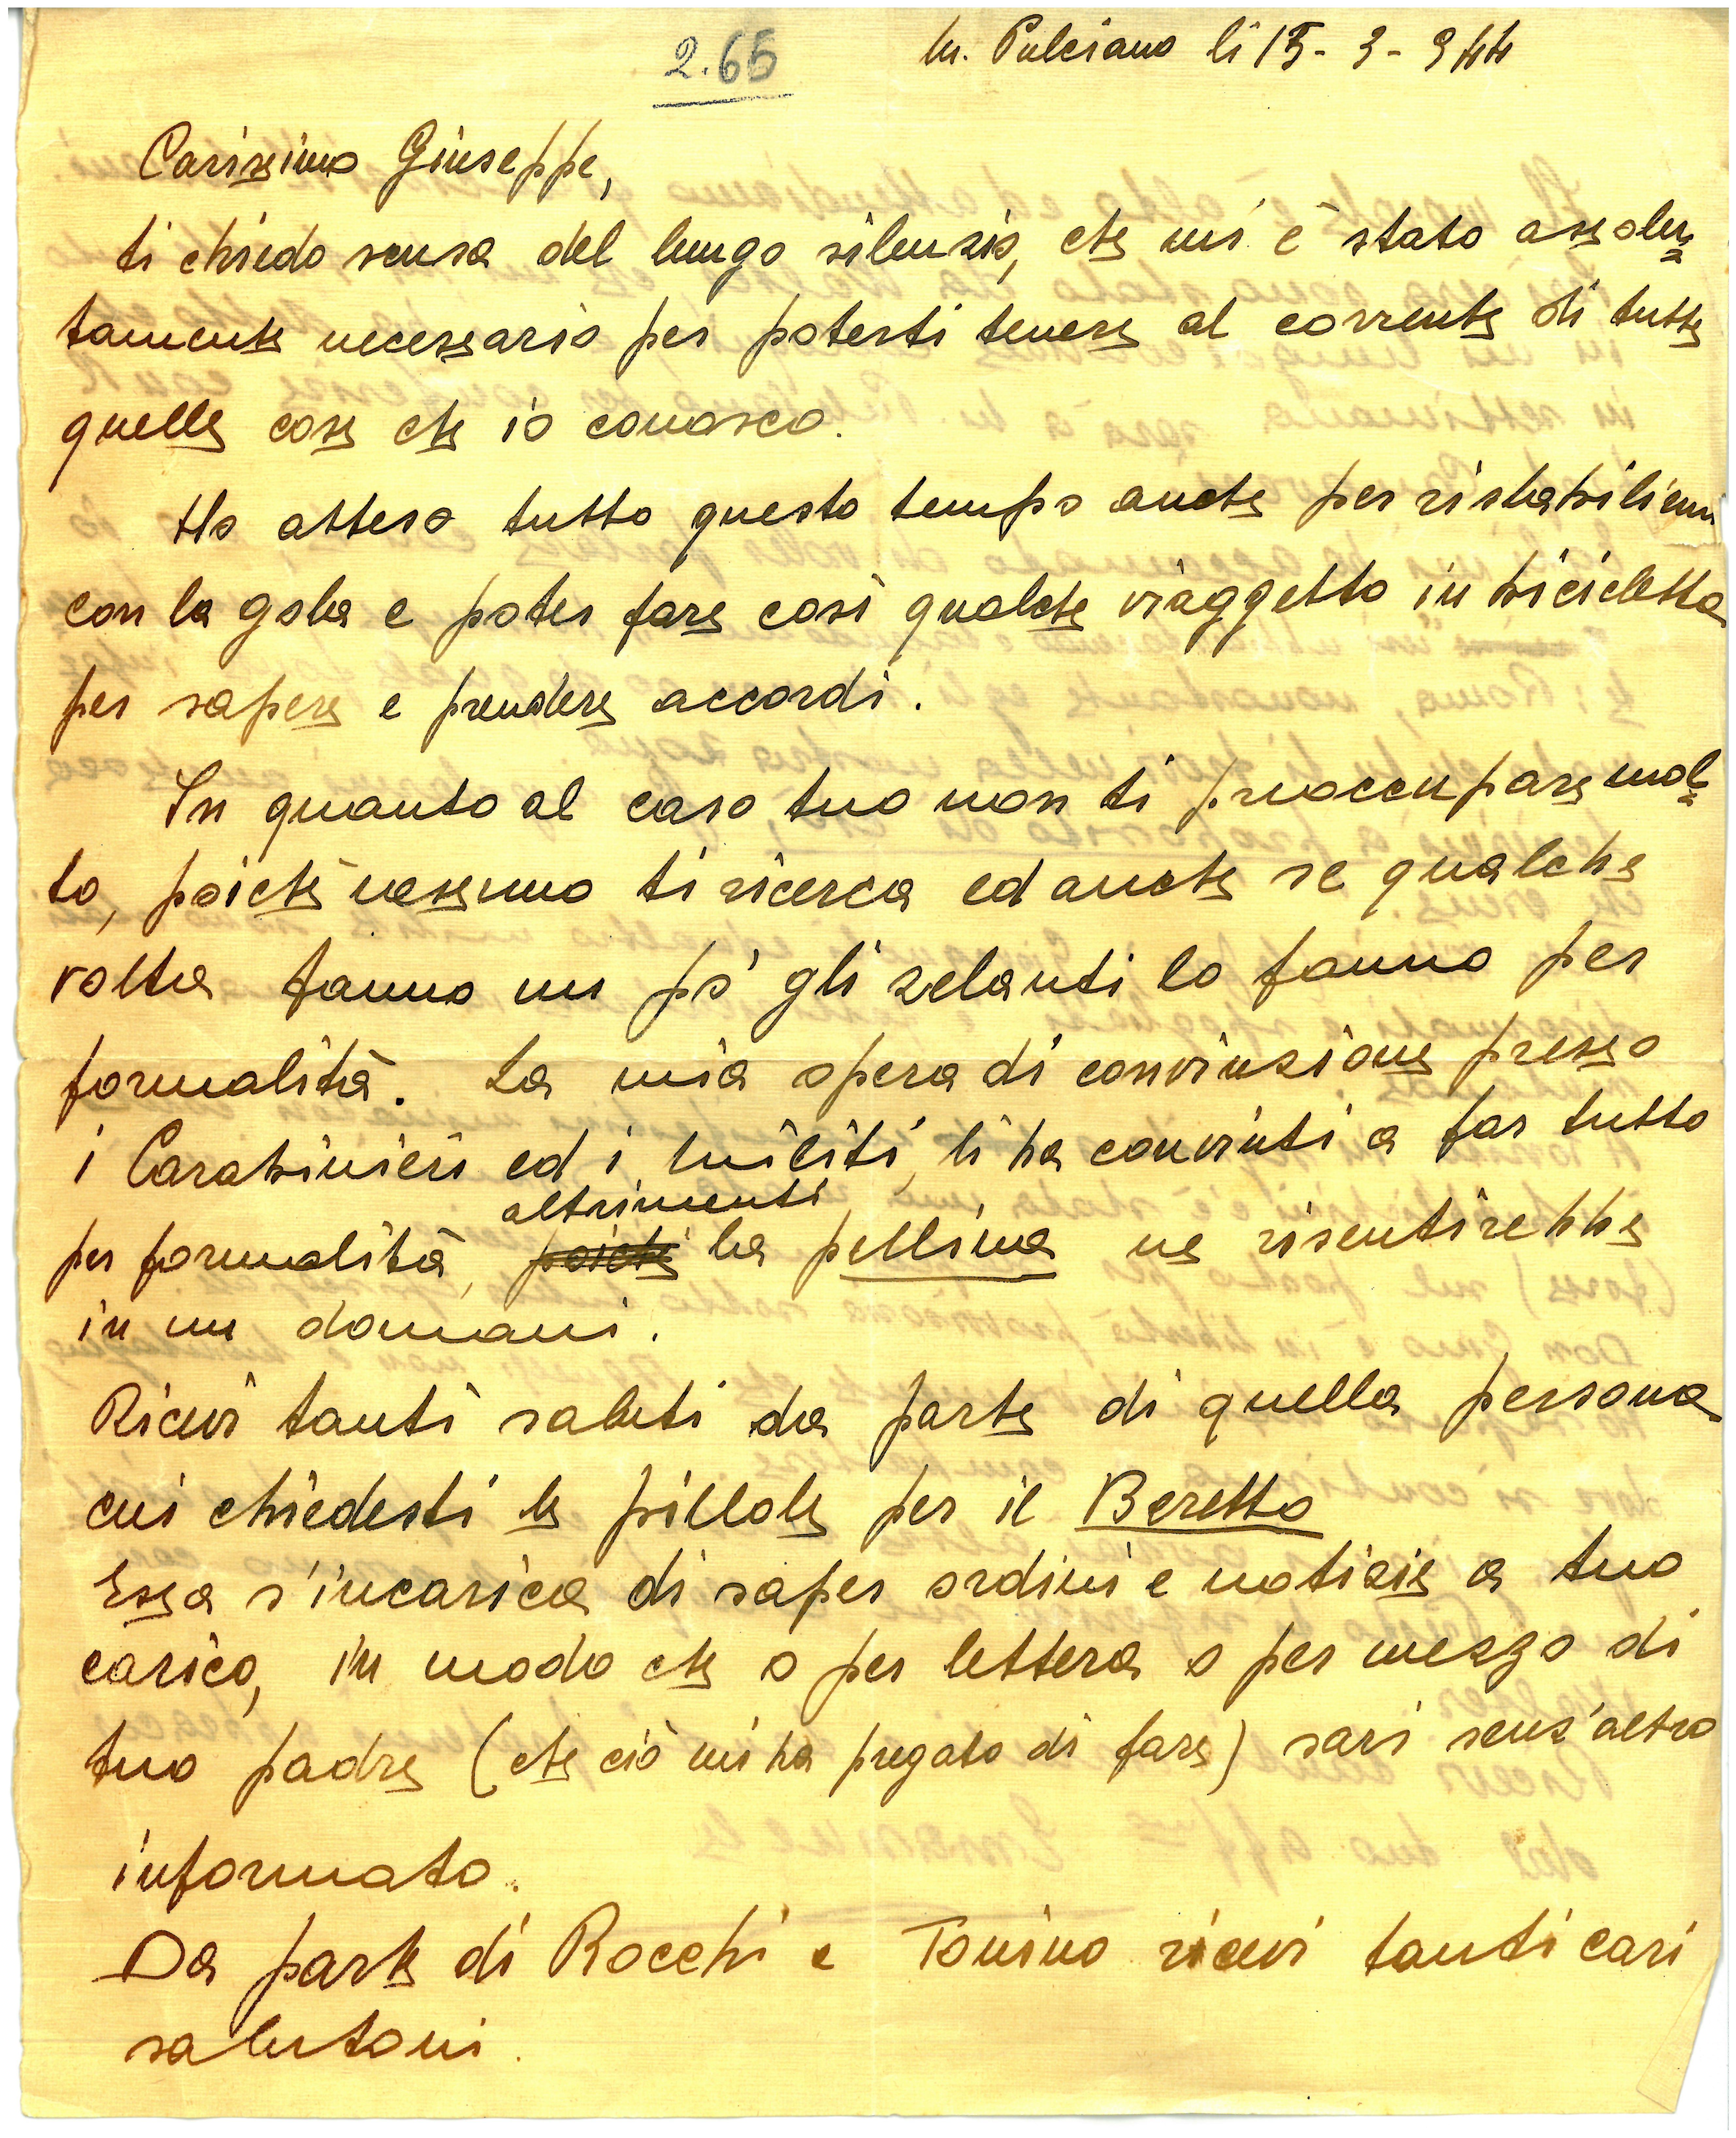 2.65
M. Pulciano li 15-3-944
Carissimo Giuseppe,
ti chiedo scusa del lungo silenzio, che mi è stato assolu=
tamente necessario per poterti tenere al corrente di tutte
quelle cose che io conosco.
Ho atteso tutto questo tempo anche per ristabilirmi
con la gola e poter fare così qualche viaggetto in bicicletta
per sapere e prendere accordi.
In quanto al caso tuo non ti preoccupare mol=
to, poichè nessuno ti ricerca ed anche se qualche
volta fanno un pò gli zelanti lo fanno per
formalità. La mia opera di convinzione presso
i Carabinieri ed i militi, li ha convinti a far tutto
altrimenti
per formalità, poichè la pellina ne risentirebbe
in un domani.
Ricevi tanti saluti da parte di quella persona
cui chiedesti le pillole per il Beretta
Essa s'incarica di saper ordini e notizie a tuo
carico, in modo che o per lettera o per mezzo di
tuo padre (che ciò mi ha pregato di fare) sari senz'altro
informato.
Da parte di Rocchi e Tonino ricevi tanti cari
salutoni.